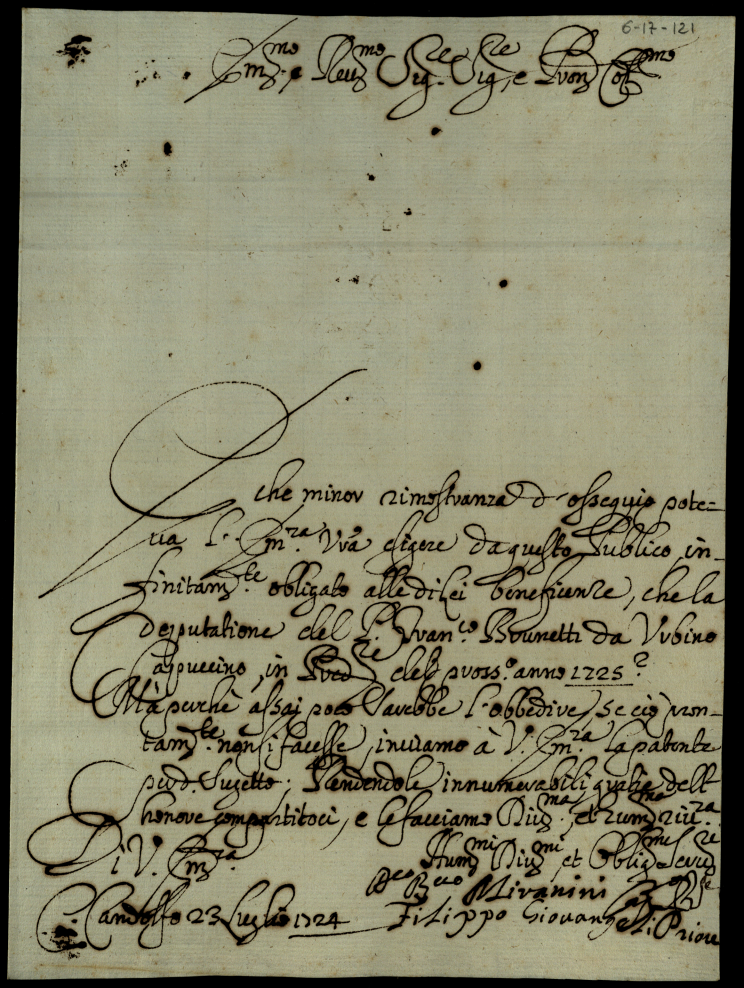 6-17-121
Em.mo e Reu.mo Sig.re Sig.re e Pron Col.mo
Che minor rimostranza d'ossequio pote=
ua l'Em.za Vra esigere da questo Publico in-
finitam.te obligato alle di lei beneficenze, che la
deputatione del P. Fran.co Brunetti da Vrbino
Cappuccino, in Pred.re del pross.o anno 1725?
Mà perche assai poco sarebbe l'obbedire, se ciò pron-
tam.te non si facesse, inuiamo à V. Em.za la patente
p d. Sugetto; Rendendole innumerabili gratie dell'
honore compartitoci, e le facciamo
Di V. Em.za
Hum.mi Diu.mi et Oblig.mi Seru.ri
Miranini
C. Gandolfo 23 Luglio 1724 Filippo Priore